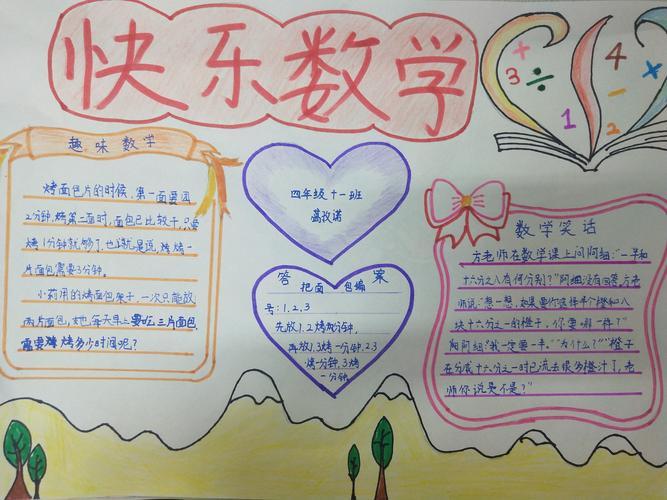 快乐数学
趣味数学
烤面包片的时候,第一面要烤
2分钟,烤第二面时,面包已比较干,只要
烤1分钟就够了,也就是说,烤烤一
片面包需要3分钟。
小莉用的烤面包架子,一次只能放
两片面包,她每天早上要吃三片面包,
需要烤多少时间呢?
四年级十一班
答案
把面包编
号:1.2.3
先放1.2烤2分钟,
再放1.3烤一分钟,2.3
烤一分钟,3烤
一分钟
数学笑话
方老师在数学课上问阿细:“一半和
十六分之八有何分别?”阿细没有回答,方老
师说:“想一想,如果要你选择半个橙和八
块十六分之一的橙子,你要哪一样?”
阿细:“我一定要一半。”“为什么?”“橙子
在分成十六分之一时已流去很多橙汁了,老
师你说是不是?”
+
3
÷
4
×
1
-
2